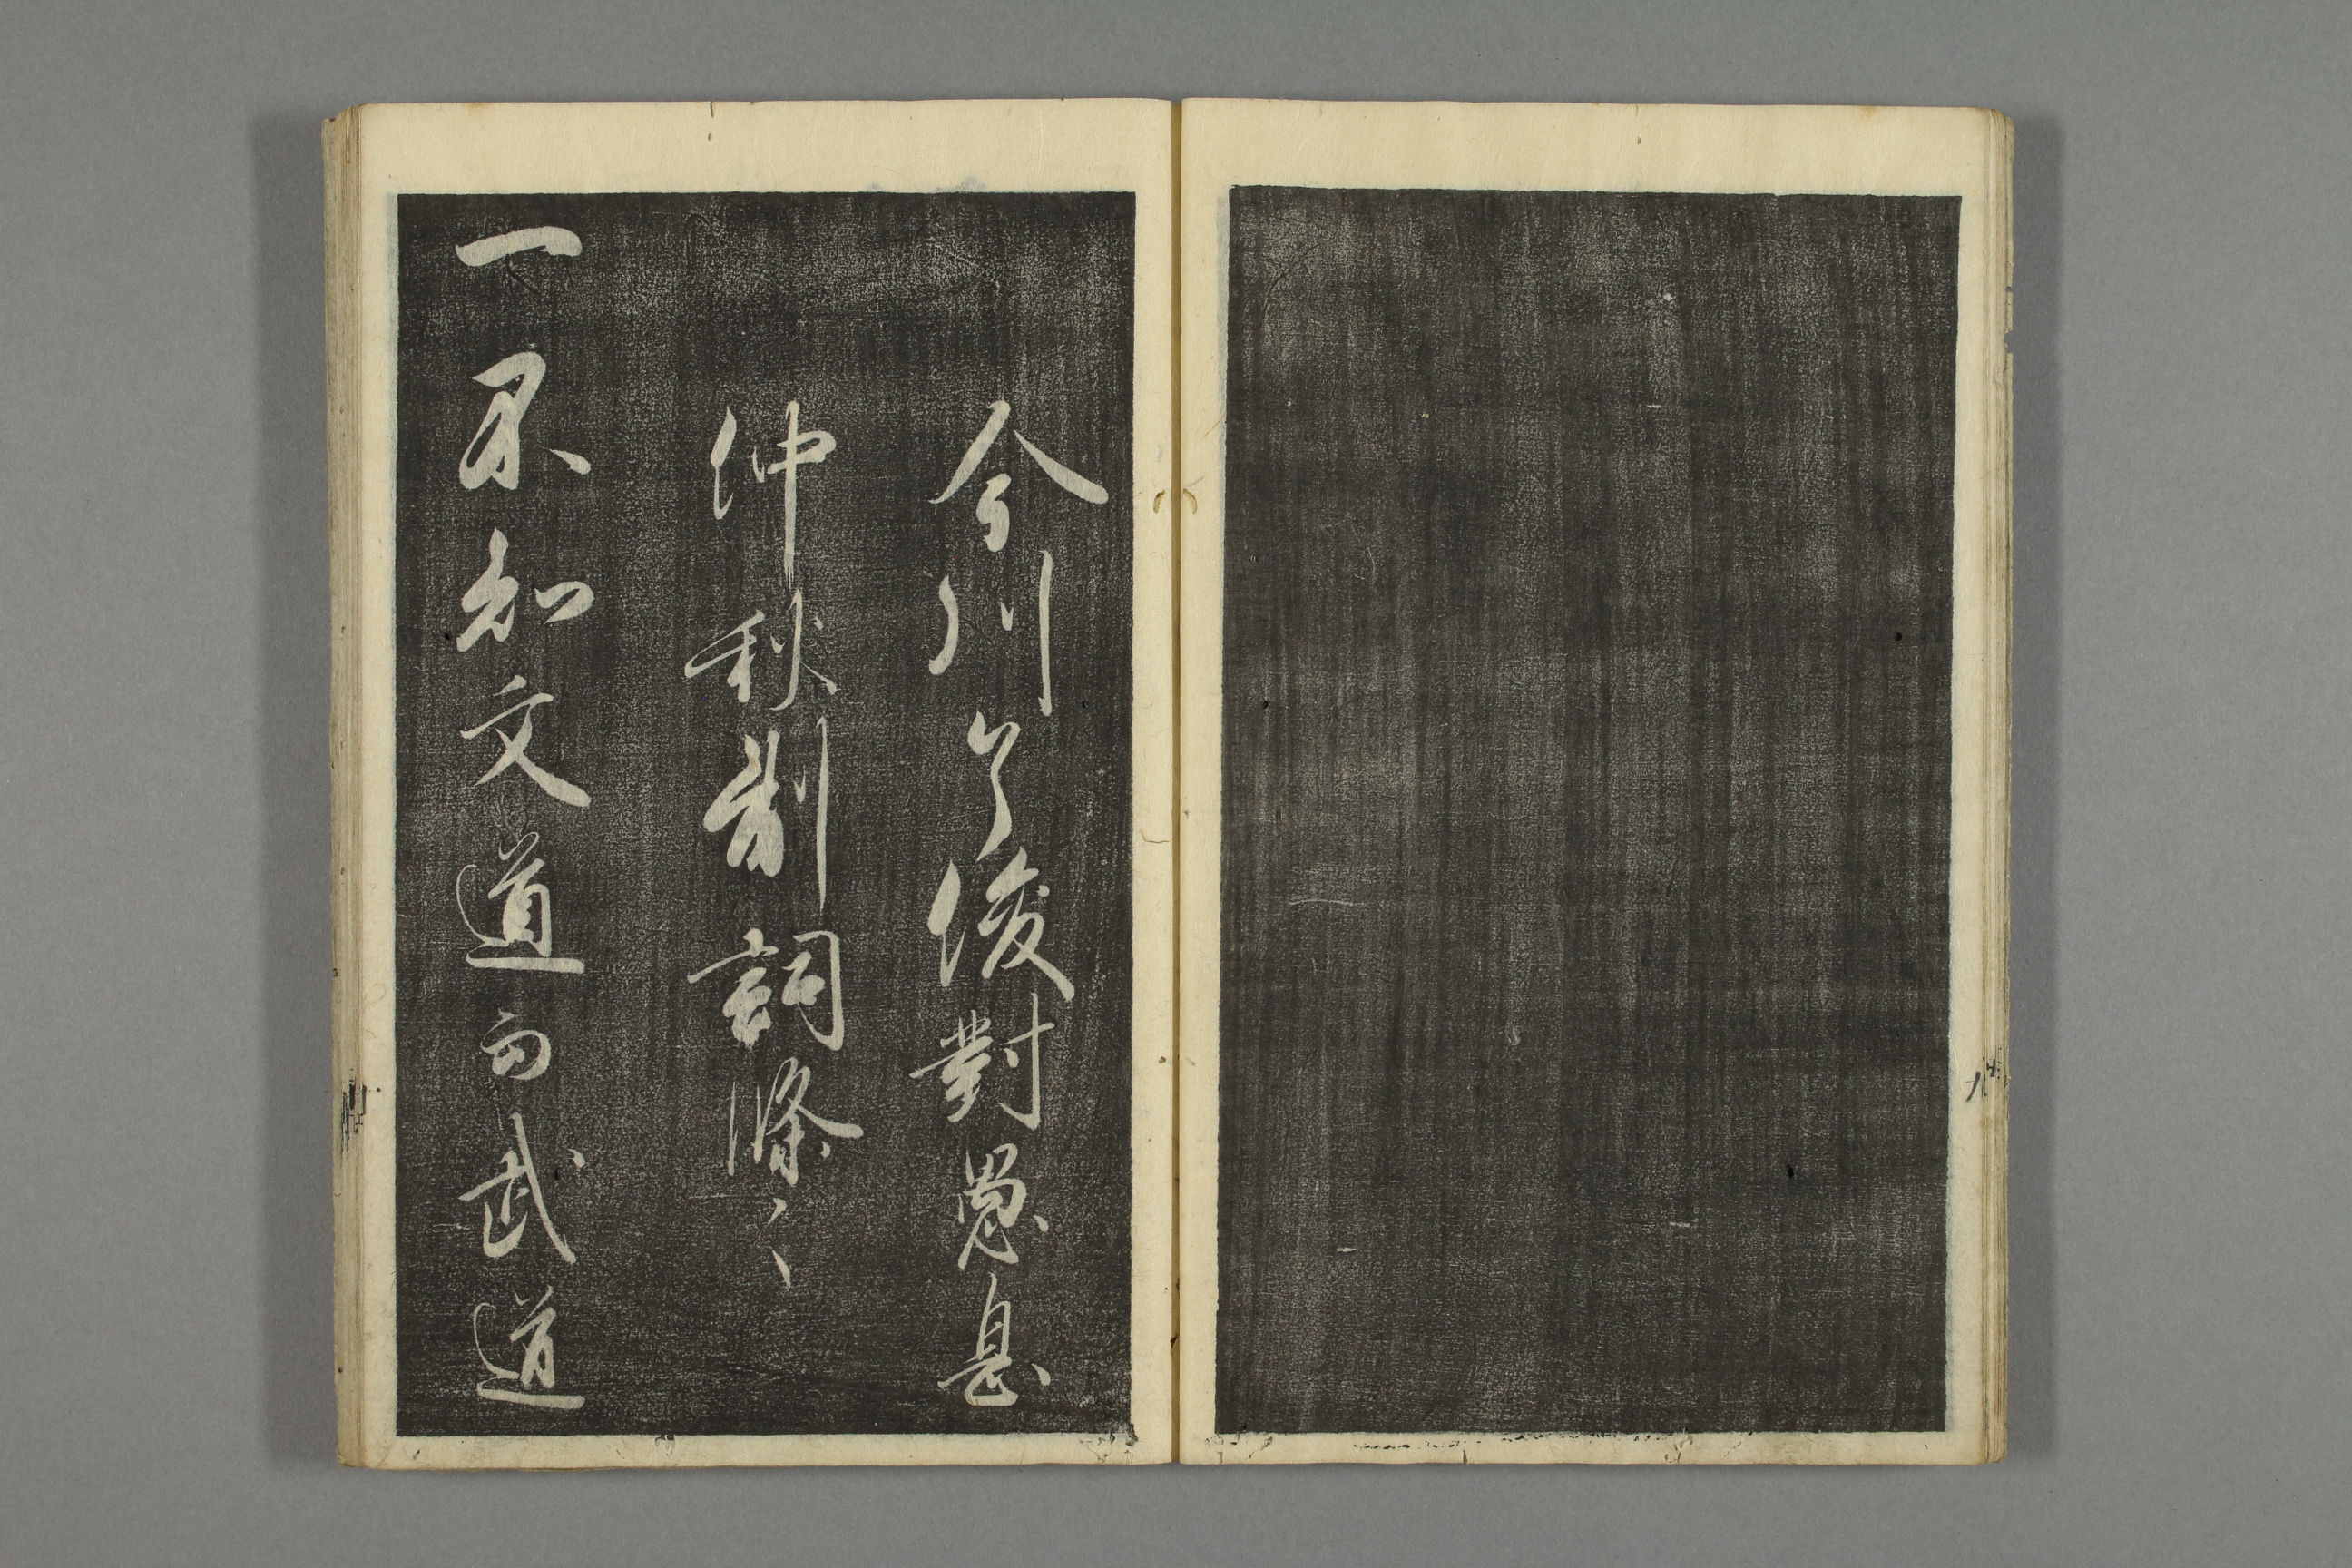 今川了俊對愚息
仲秋制詞條〻
一不知文道而武道